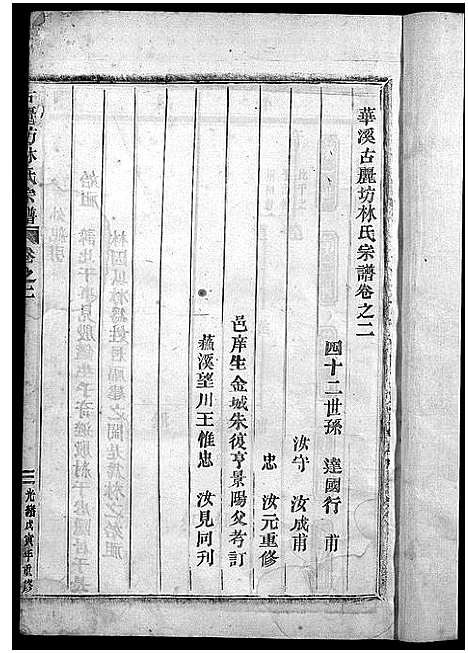 華溪古麗坊林氏宗譜卷之二
四十二世孫 達國行甫
汝守 汝成甫
忠 汝元重修
邑庠生金城朱復亨景陽父考訂
蘓溪望川王惟忠 汝見同刋
古麗坊林氏宗譜
卷之二
一
光緒戊寅年重修